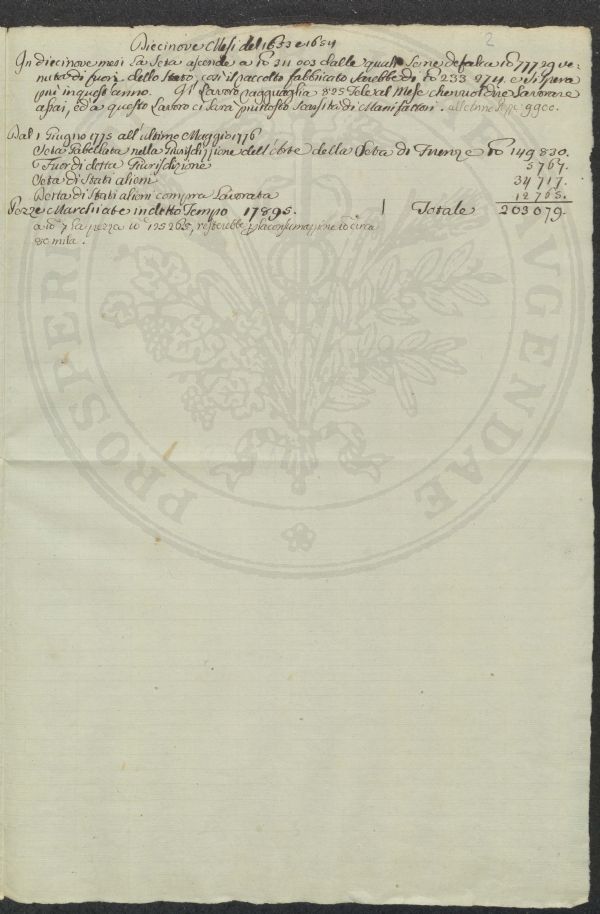 2
Diecinove Mesi del 1653 e 1654
In diecinove mesi La Seta ascende a lb 311 003 dalle quali se ne defalca lb 77729 ve-
nuta di fuori dello Stato, così il raccolto fabbricato sarebbe di lb 233 274. e si spera
più in quest'anno. Il Lavoro ragguaglia 825 Tele al Mese che vuol dire Lavorare
assai, ed a questo Lavoro ci sarà piuttosto Scarsità di Manifattori. all'Anno 9900.
Dal 1 Giugno 1775 all'ultimo Maggio 1776
Seta Gabellata nella Giurisdizzione dell'Arte della Seta di Firenze lb 149 830.
Fuor di detta Giurisdizione 5767.
Seta di Stati alieni 34 717.
Detta di Stati alieni compra Lavorata 12 765.
Pezze Marchiate in detto Tempo 17895. Totale 203 079.
a lb 7 la pezza lb 125 265, resterebbe p la consumazzione lb circa
80 mila.
PROSPERI AVGENDAE